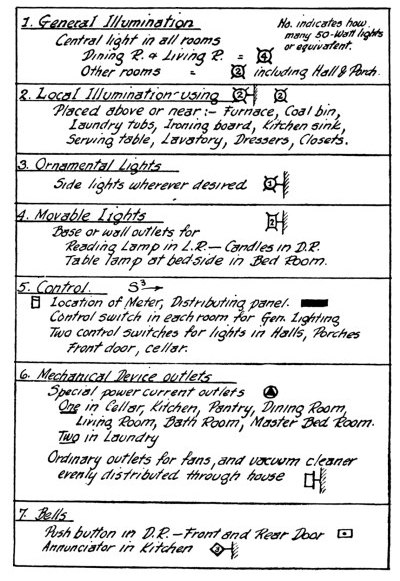 1. General Illumination
No. indicates how
many 50-Watt lights
or equivalent.
Central light in all rooms
Dining R. & Living R. = 4
Other rooms = 3 including Hall & Porch.
2. Local Illumination-using 2 2
Placed above or near:- Furnace, Coal bin,
Laundry tubs, Ironing board, Kitchen sink,
Serving table, Lavatory, Dressers, Closets.
3. Ornamental Lights
Side lights wherever desired 1
4. Movable Lights 2
Base or wall outlets for
Reading Lamp in L.R.- Candles in D.R.
Table lamp at bedside in Bed Room.
5. Control. S3
Location of Meter, Distributing panel.
Control switch in each room for Gen. Lighting
Two control switches for lights in Halls, Porches
Front door, cellar.
6. Mechanical Device outlets
Special power current outlets
One in Cellar, Kitchen, Pantry, Dining Room,
Living Room, Bath Room, Master Bed Room.
Two in Laundry
Ordinary outlets for fans, and vacuum cleaner
evenly distributed through house
7. Bells
Push button in D.R. - Front and Rear Door
Annunciator in Kitchen 3